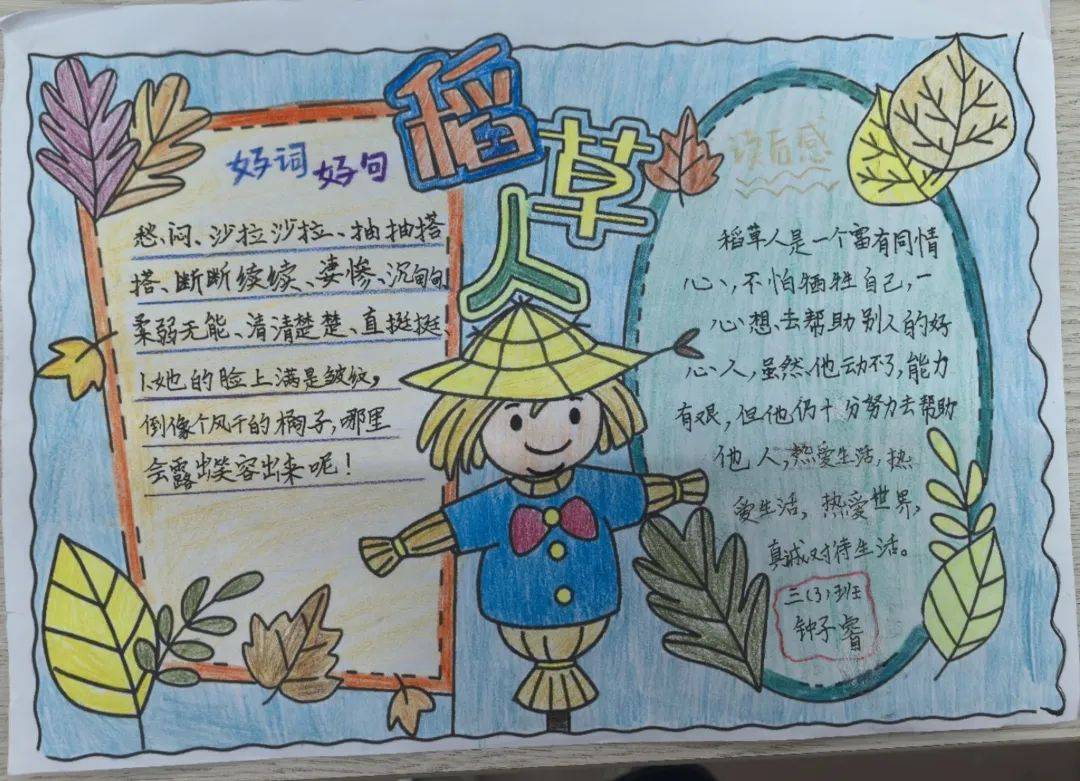 稻草人
好词好句
愁闷、沙拉沙拉、抽抽搭
搭、断断续续、凄惨、沉甸甸
柔弱无能、清清楚楚、直挺挺
1.她的脸上满是皱纹，
倒像个风干的橘子，哪里
会露出笑容出来呢！
读后感
稻草人是一个富有同情
心，不怕牺牲自己，一
心想去帮助别人的好
心人，虽然他动不了，能力
有艰，但他仍十分努力去帮助
他人，热爱生活，热
爱生活，热爱世界，
真诚对待生活。
三(3)班
钟子睿